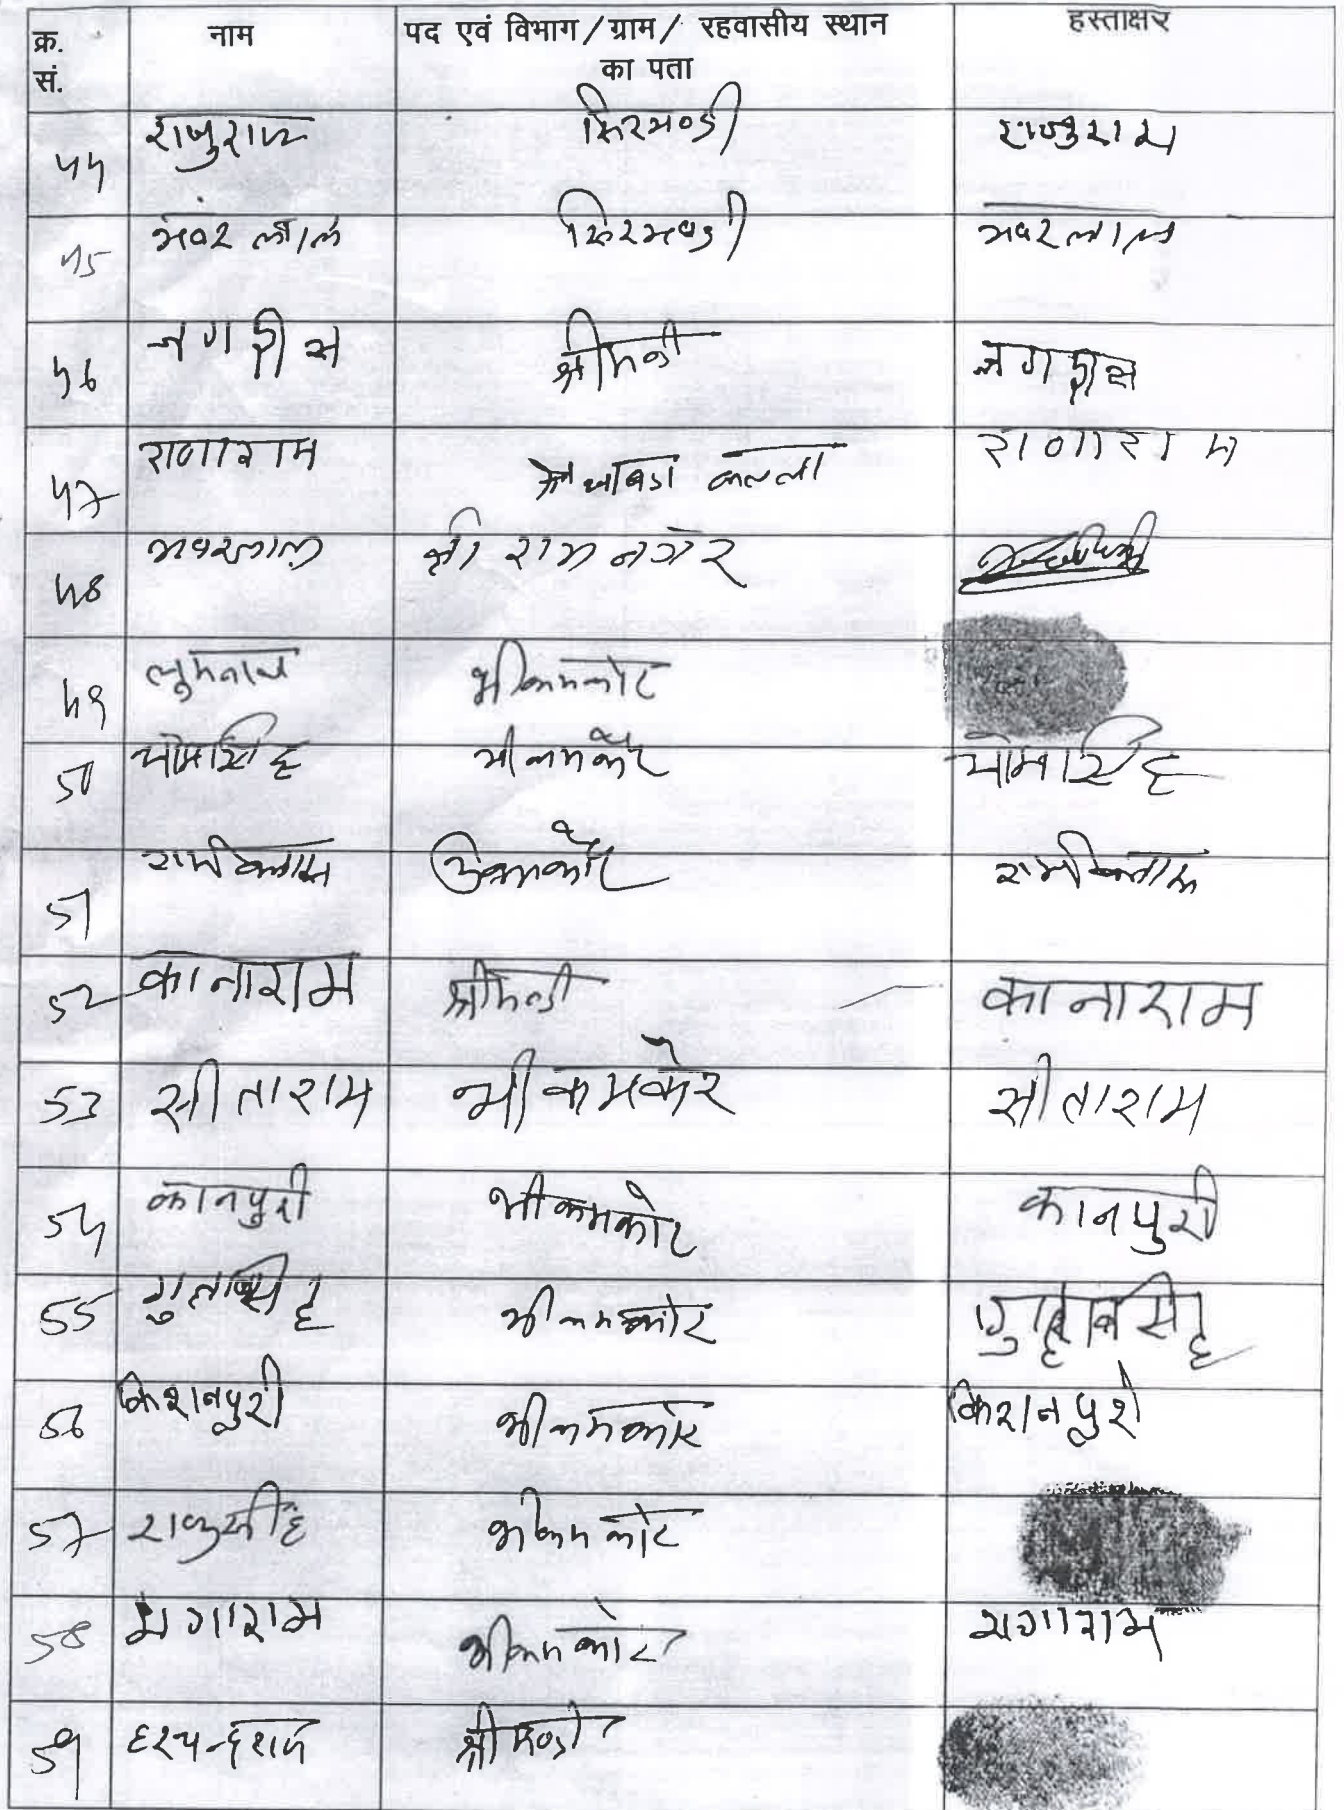 क्र. सं. नाम पद एवं विभाग/ग्राम/ रहवासीय स्थान का पता हस्ताक्षर
44 राजुराम सिरमण्डी राजुराम
45 भंवरलाल सिरमण्डी भवरलाल
46 जगदीस श्रीमडी जगदीस
47 राणाराम राणाराम
48 भवरलाल श्री राम नगर
49 भीकमकोर
50 भोमसिंह भीकमकोर भोमसिंह
51
52 कानाराम श्रीमडी कानाराम
53 सीताराम भीकमकोर सीताराम
54 कानपुरी भीकमकोर कानपुरी
55 भीकमकोर गुलाबसिह
56 किशनपुरी भीकमकोर किशनपुरी
57 राजुसींह भीकमकोर
58 मगाराम भीकमकोर मगाराम
59 श्रीमण्डी